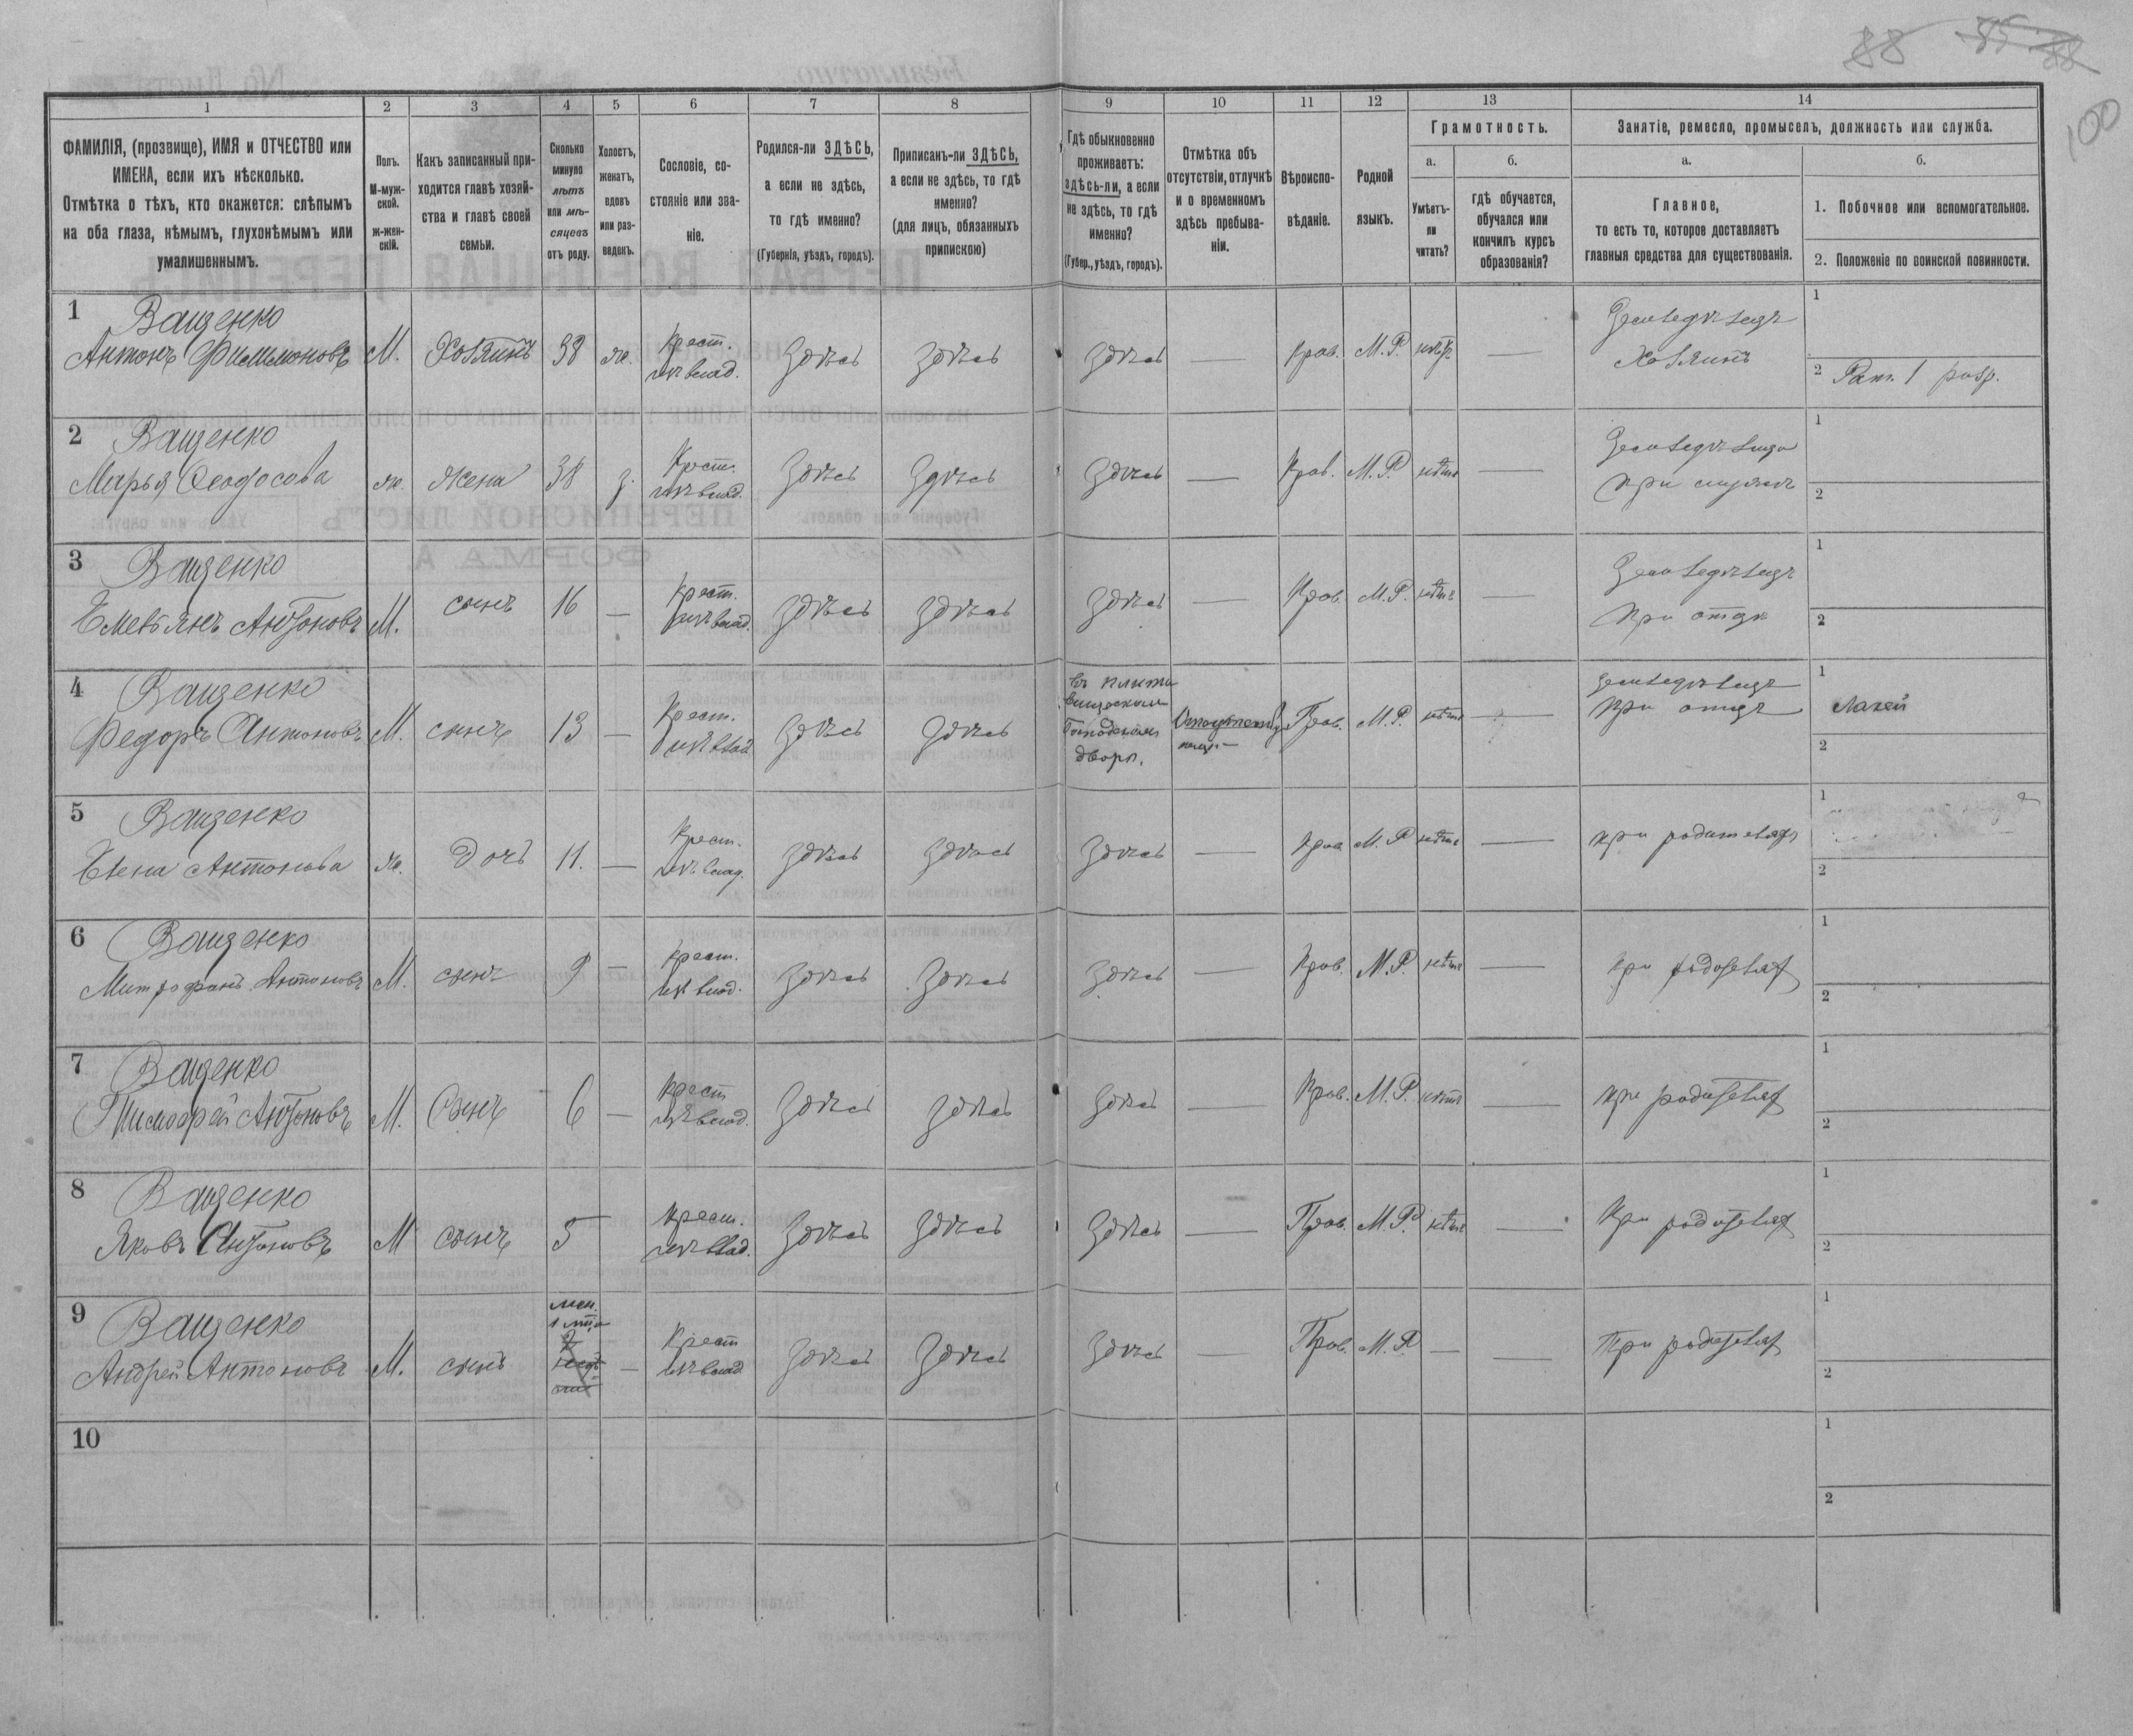 88 85 88
100
1 2 3 4 5 6 7 8 9 10 11 12 13 14
ФАМИЛІЯ, (прозвище), ИМЯ и ОТЧЕСТВО или
ИМЕНА, если ихъ нѣсколько.
Отмѣтка о тѣхъ, кто окажется: слѣпымъ
на оба глаза, нѣмымъ, глухонѣмымъ или
умалишеннымъ.
Полъ.
М-муж-
ской.
ж-жен-
скій.
Какъ записанный при-
ходится главѣ хозяй-
ства и главѣ своей
семьи.
Сколько
минуло
лѣтъ
или мѣ-
сяцевъ
отъ роду.
Холостъ,
женатъ,
вдовъ
или раз-
веденъ.
Сословіе, со-
стояніе или зва-
ніе.
Родился-ли ЗДѢСЬ,
а если не здѣсь,
то гдѣ именно?
(Губернія, уѣздъ, городъ).
Приписанъ-ли ЗДѢСЬ,
а если не здѣсь, то гдѣ
именно?
(для лицъ, обязанныхъ
припискою)
Гдѣ обыкновенно
проживаетъ:
здѣсь-ли, а если
не здѣсь, то гдѣ
именно?
(Губер., уѣздъ, городъ).
Отмѣтка объ
отсутствіи, отлучкѣ
и о временномъ
здѣсь пребыва-
ніи.
Вѣроиспо-
вѣданіе.
Родной
языкъ.
Грамотность.
а.
Умѣетъ-
ли
читать?
б.
гдѣ обучается,
обучался или
кончилъ курсъ
образованія?
Занятіе, ремесло, промыселъ, должность или служба.
а.
Главное,
то есть то, которое доставляетъ
главныя средства для существованія.
б.
1. Побочное или вспомогательное.
2. Положеніе по воинской повинности.
1 Ващенко
Антонъ Филимоновъ М. Хозяинъ 38 ж. Крест. Здѣсь Здѣсь Здѣсь — Прав. М.Р. — Земледѣлецъ
Хозяинъ
1
2 Рат. 1 разр.
2 Ващенко
Марья Феодосова ж. Жена 38 з. Крест. Здѣсь Здѣсь Здѣсь — Прав. М.Р. нѣтъ — при мужѣ
1
2
3 Ващенко
Емельянъ Антоновъ М. сынъ 16 — Крест. Здѣсь Здѣсь Здѣсь — Прав. М.Р. нѣтъ — Земледѣлецъ
при отцѣ
1
2
4 Ващенко
Федоръ Антоновъ М. сынъ 13 — Крест. Здѣсь Здѣсь въ
дворѣ. Прав. М.Р. нѣтъ — Земледѣлецъ
при отцѣ
1 Лакей
2
5 Ващенко
Елена Антонова ж. Дочь 11. — Крест. Здѣсь Здѣсь Здѣсь — Прав. М.Р. нѣтъ — при родителяхъ
1
2
6 Ващенко
Митрофанъ Антоновъ М. сынъ 9 — Крест. Здѣсь Здѣсь Здѣсь — Прав. М.Р. нѣтъ — при родителях
1
2
7 Ващенко
Тимофей Антоновъ М. Сынъ 6 — Крест Здѣсь Здѣсь Здѣсь — Прав. М.Р. нѣтъ — при родителях
1
2
8 Ващенко
Яковъ Антоновъ М сынъ 5 Крест. Здѣсь Здѣсь Здѣсь — Прав. М.Р. нѣтъ — при родителях
1
2
9 Ващенко
Андрей Антоновъ М. сынъ — Крест Здѣсь Здѣсь Здѣсь — Прав. М.Р. — — При родителях
1
2
10
1
2